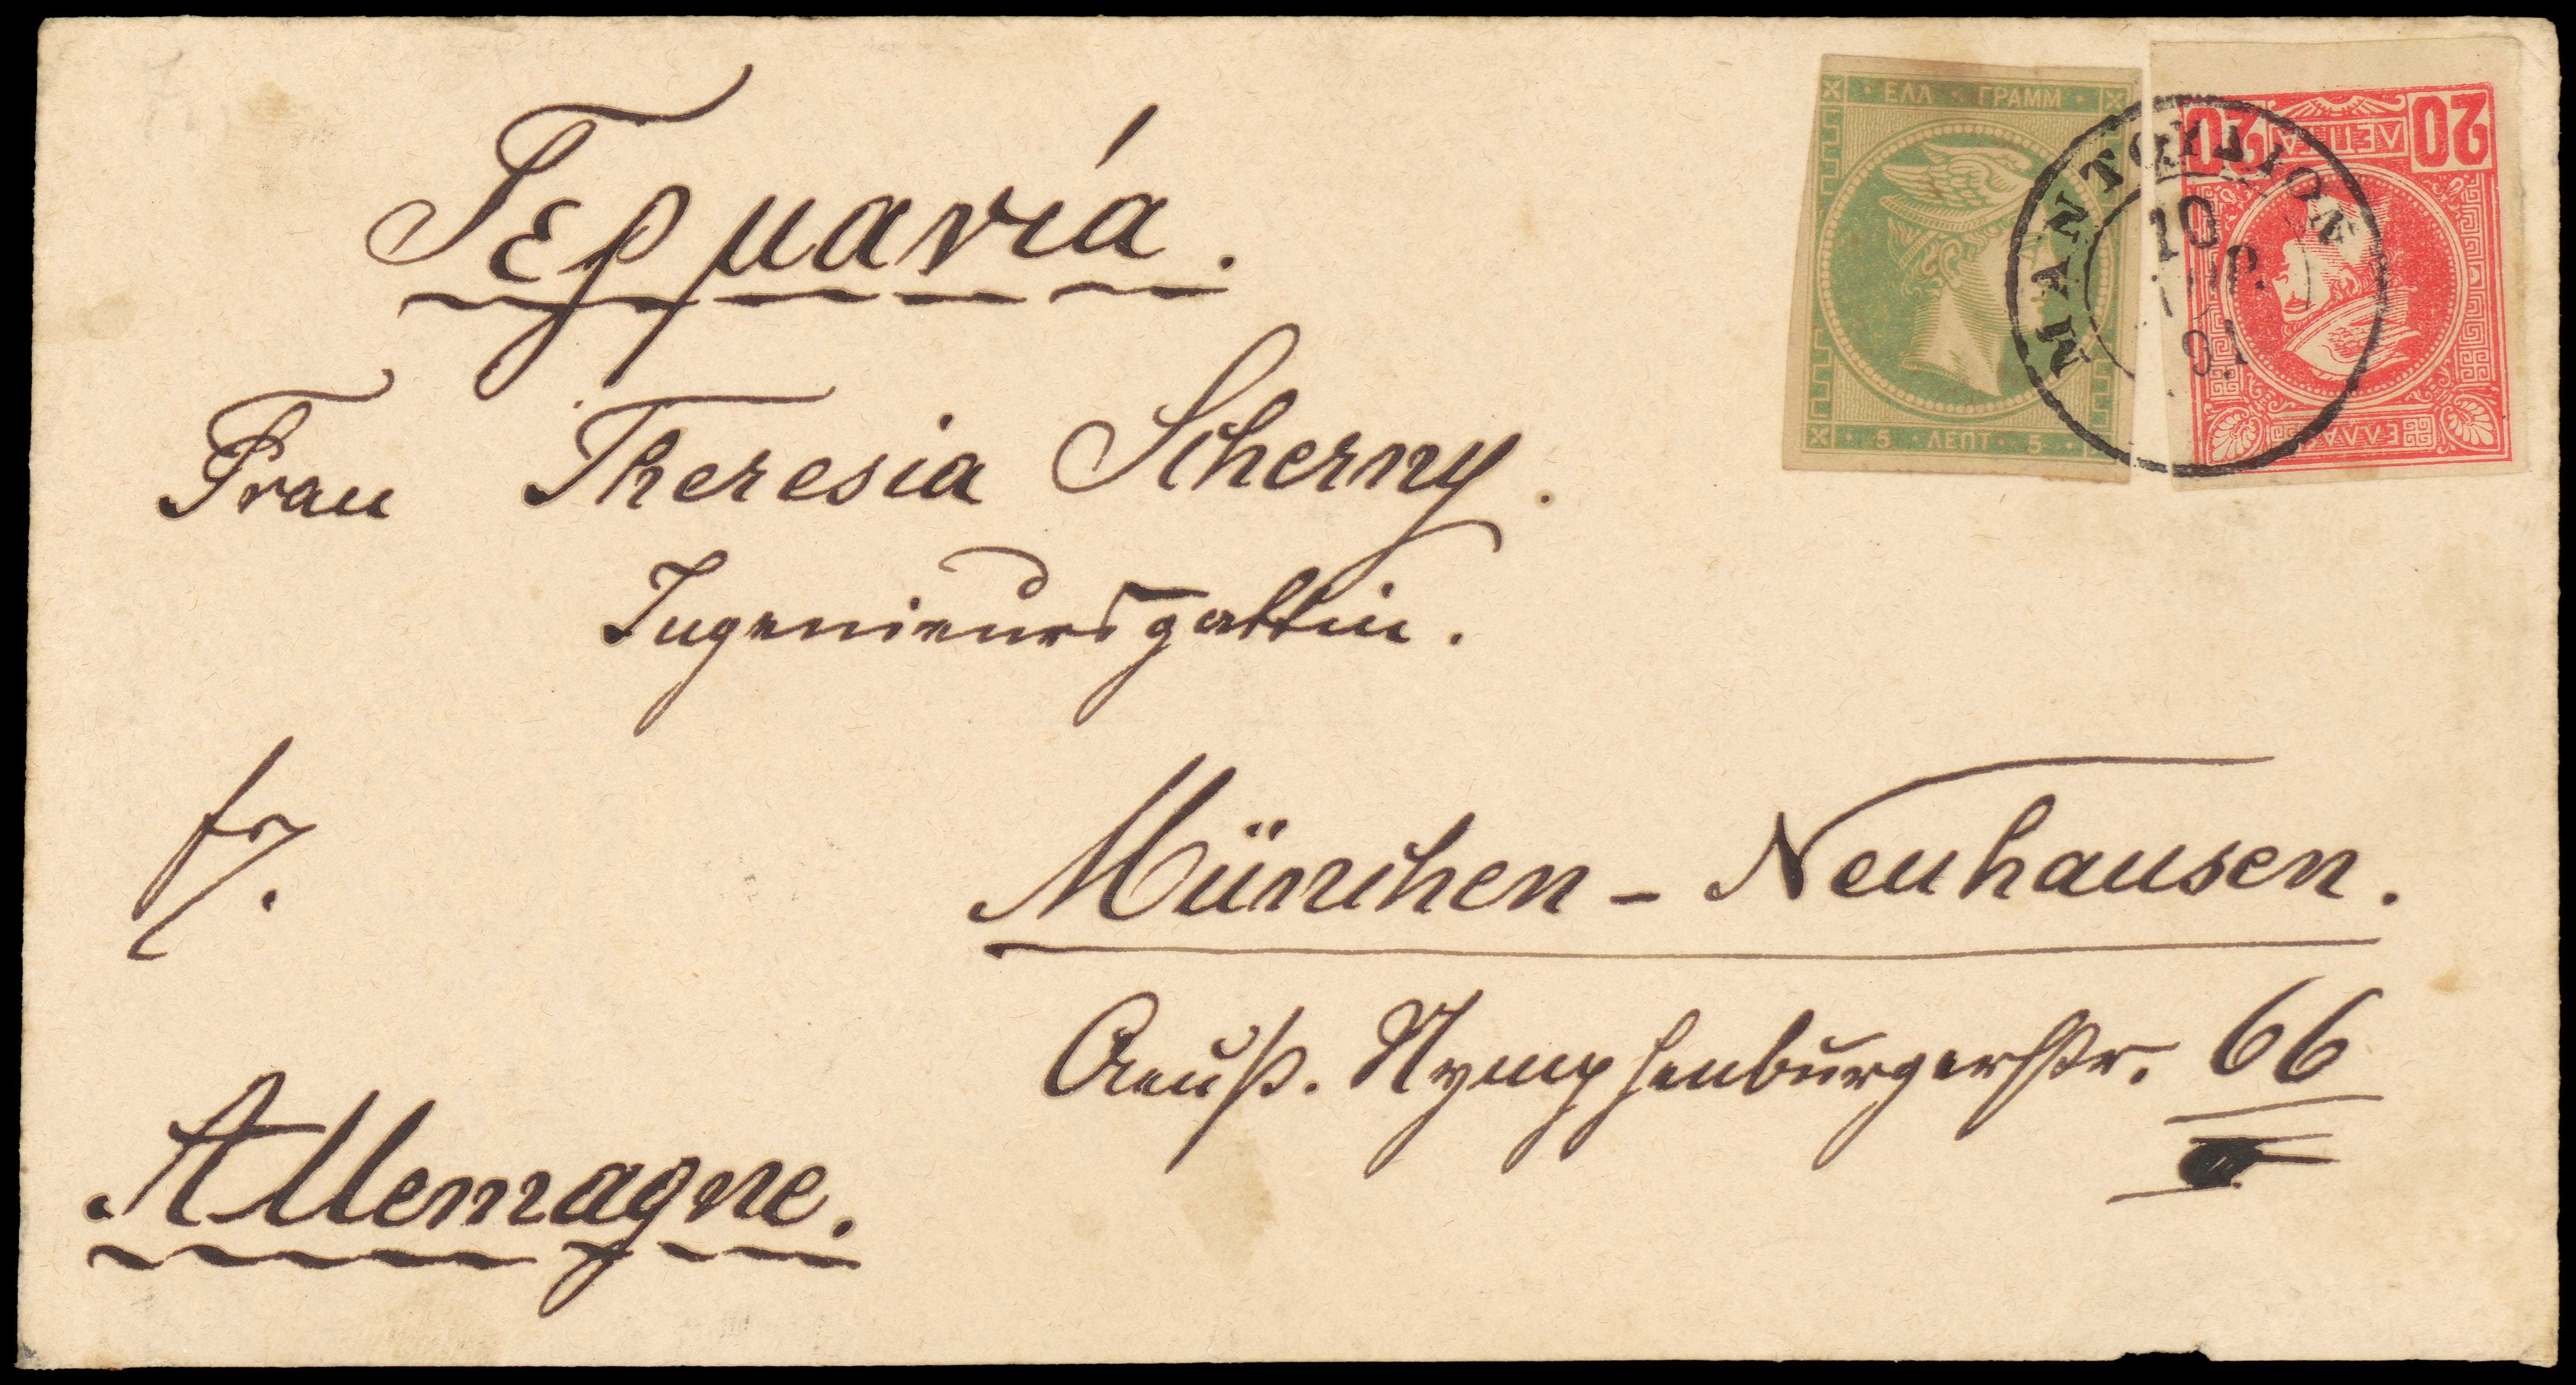 Γερμανία.
ΕΛΛ ΓΡΑΜΜ
5 ΛΕΠΤ 5
20 ΛΕΠΤΑ 20
ΕΛΛΑΣ
10
91
Frau Theresia Scherny.
Ingenieursgattin.
fr.
München - Neuhausen.
Aeuß. Nymphenburgerstr. 66
Allemagne.